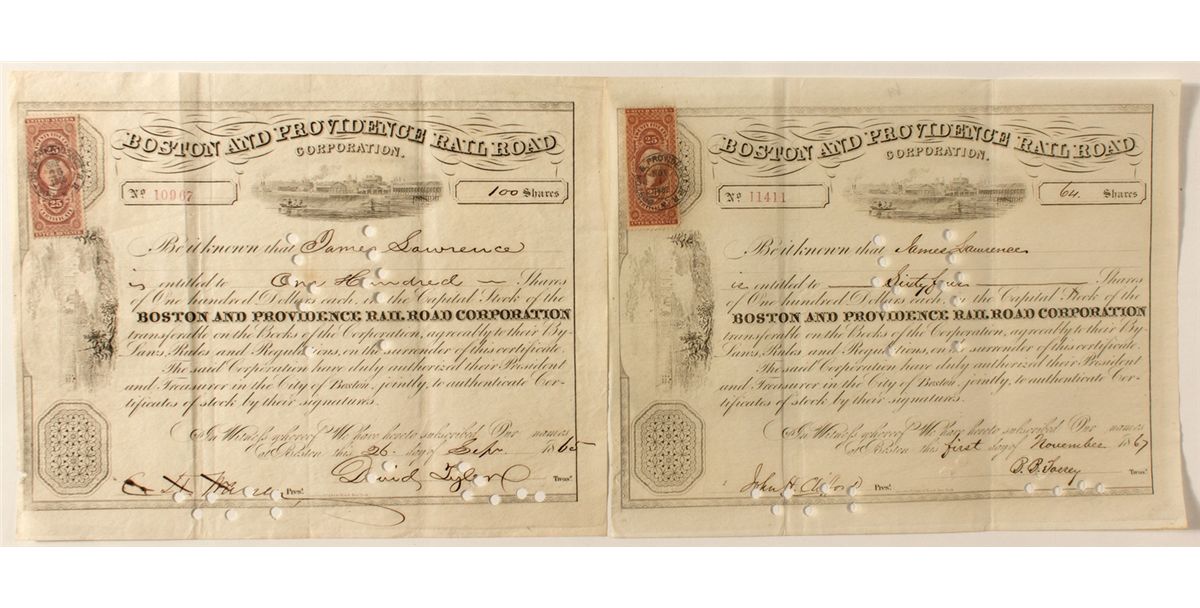 BOSTON AND PROVIDENCE RAIL ROAD
CORPORATION.
25
25
No 10967
100 Shares
Be it known that James Lawrence
is entitled to One Hundred Shares
of One hundred Dollars each, in the Capital Stock of the
BOSTON AND PROVIDENCE RAIL ROAD CORPORATION
transferable on the Books of the Corporation, agreeably to their By
Laws, Rules and Regulations, on the surrender of this certificate.
The said Corporation have duly authorized their President
and Treasurer in the City of Boston, jointly, to authenticate Cer-
tificates of stock by their signatures.
In Witness whereof We have hereto subscribed Our names
at Boston this 26 day of Sepr 1865
Pres.t
David Tyler Treas.r
BOSTON AND PROVIDENCE RAIL ROAD
CORPORATION.
25
25
No 11411
64 Shares
Be it known that James Lawrence
is entitled to Sixty four Shares
of One hundred Dollars each, in the Capital Stock of the
BOSTON AND PROVIDENCE RAIL ROAD CORPORATION
transferable on the Books of the Corporation, agreeably to their By-
Laws, Rules and Regulations, on the surrender of this certificate.
The said Corporation have duly authorized their President
and Treasurer in the City of Boston, jointly, to authenticate Cer-
tificates of stock by their signatures.
In Witness whereof We have hereto subscribed Our names
at Boston this first day of November 1867
John H. Clifford Pres.t
B. B. Torrey Treas.r